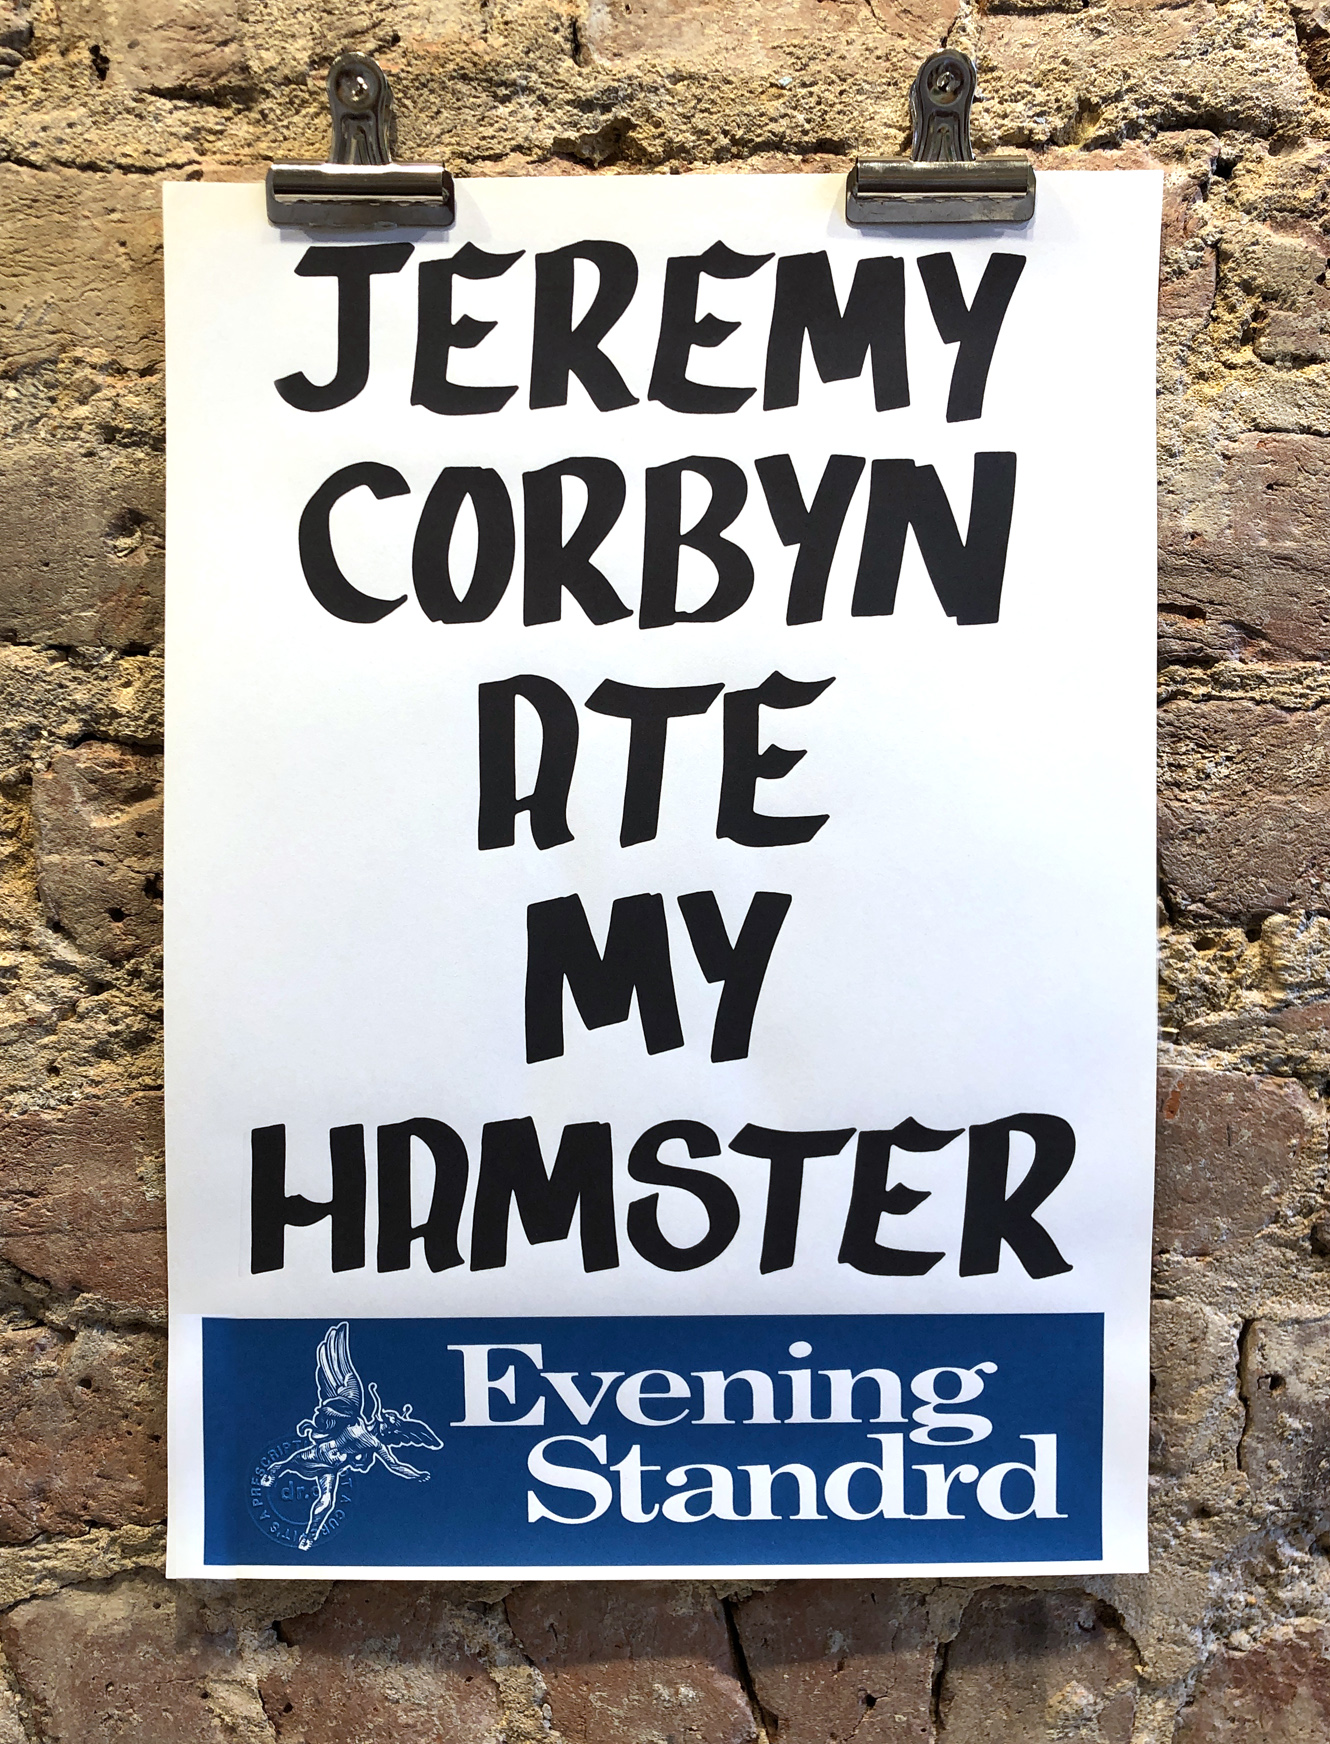 JEREMY
CORBYN
ATE
MY
HAMSTER
Evening
Standrd
IT'S A PRESCRIPT